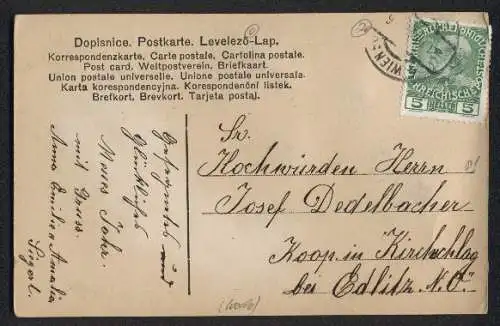 Dopisnice. Postkarte. Levelező-Lap.
Korrespondenzkarte. Carte postale. Cartolina postale.
Post card. Weltpostverein. Briefkaart.
Union postale universelle. Unione postale universale.
Karta korespondencyjna. Korespondenční lístek.
Brefkort. Brevkort. Tarjeta postal.
WIEN
5 5
HELLER
Gesegnetes und
Glückliches
Neues Jahr.
mit Gruss.
Anna Emilie Amalia
Sr.
Hochwürden Herrn
Josef Dedelbacher
Koop. in Kirchschlag
bei Edlitz N.Ö.